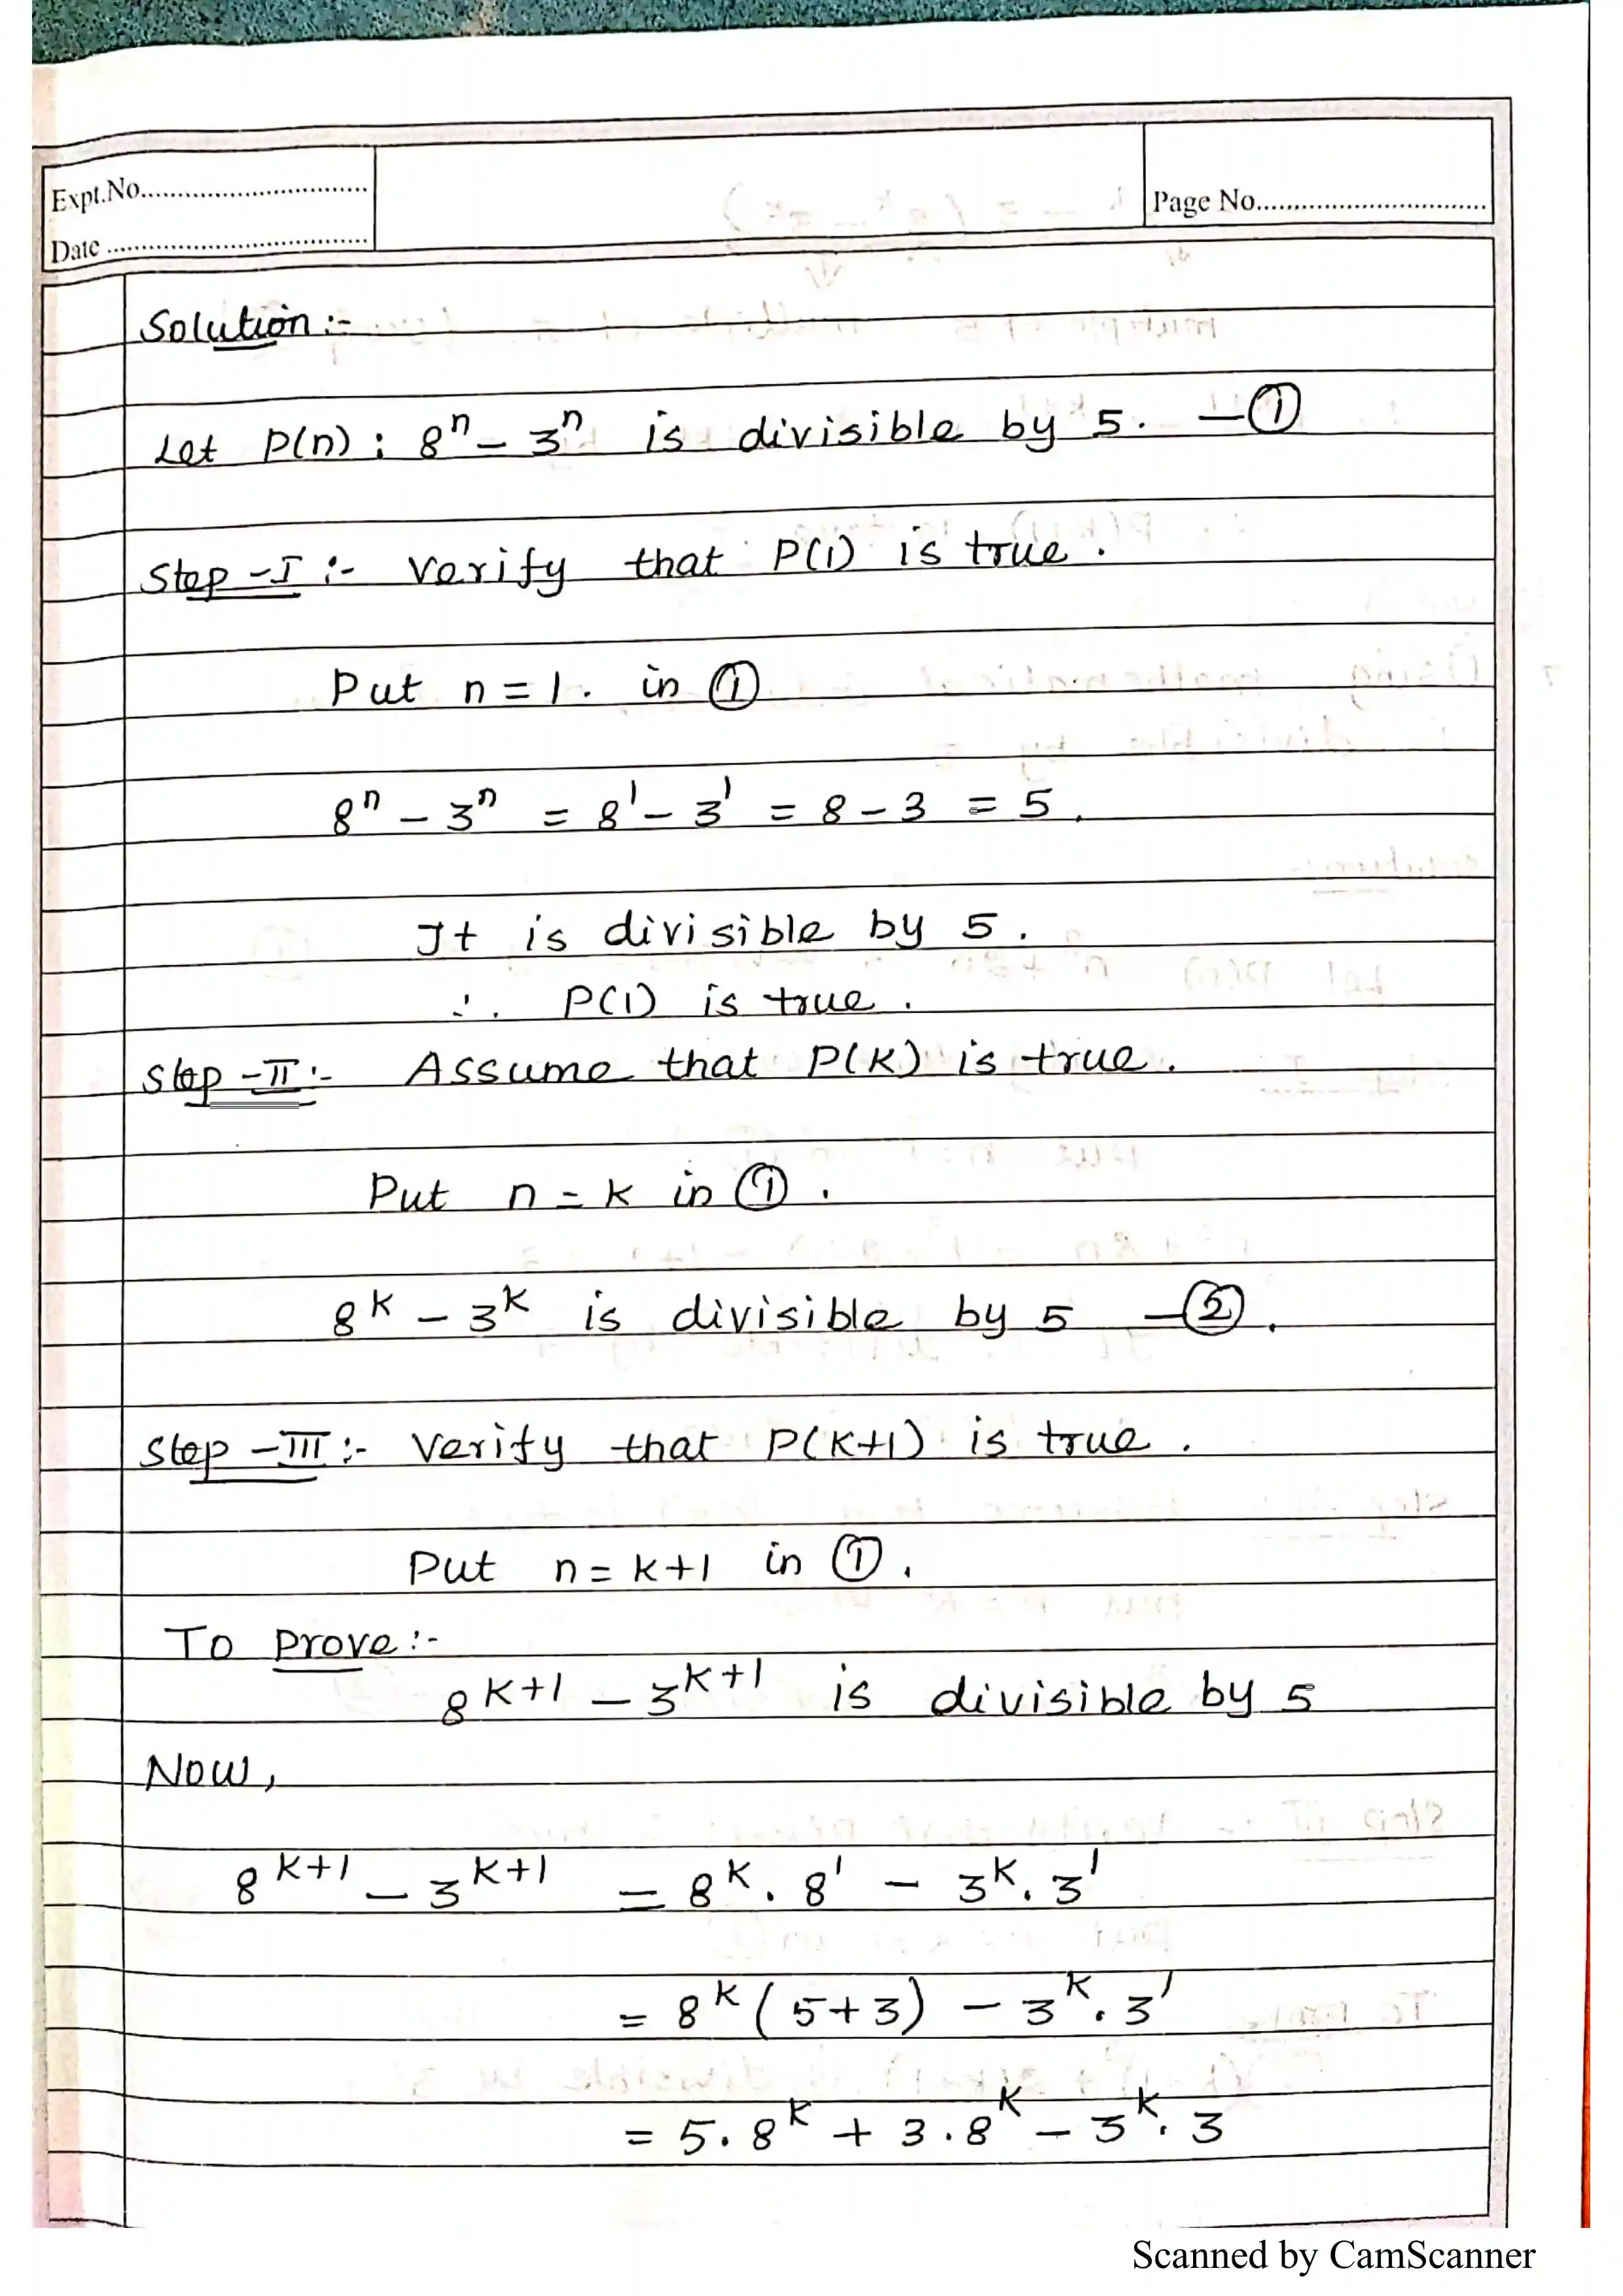 Expt.No..............................
Date ..................................
Page No..............................
Solution :-
Let P(n) : 8ⁿ - 3ⁿ is divisible by 5. —①
Step -I :- Verify that P(1) is true.
Put n = 1. in ①
8ⁿ - 3ⁿ = 8¹ - 3¹ = 8 - 3 = 5.
It is divisible by 5.
∴ P(1) is true.
Step -II :- Assume that P(K) is true.
Put n = K in ①.
8ᴷ - 3ᴷ is divisible by 5 —②.
Step -III :- Verify that P(K+1) is true.
Put n = K+1 in ①.
To Prove :-
8ᴷ⁺¹ - 3ᴷ⁺¹ is divisible by 5
Now,
8ᴷ⁺¹ - 3ᴷ⁺¹ = 8ᴷ. 8¹ - 3ᴷ. 3¹
= 8ᴷ (5+3) - 3ᴷ. 3¹
= 5. 8ᴷ + 3 . 8ᴷ - 3ᴷ. 3
Scanned by CamScanner